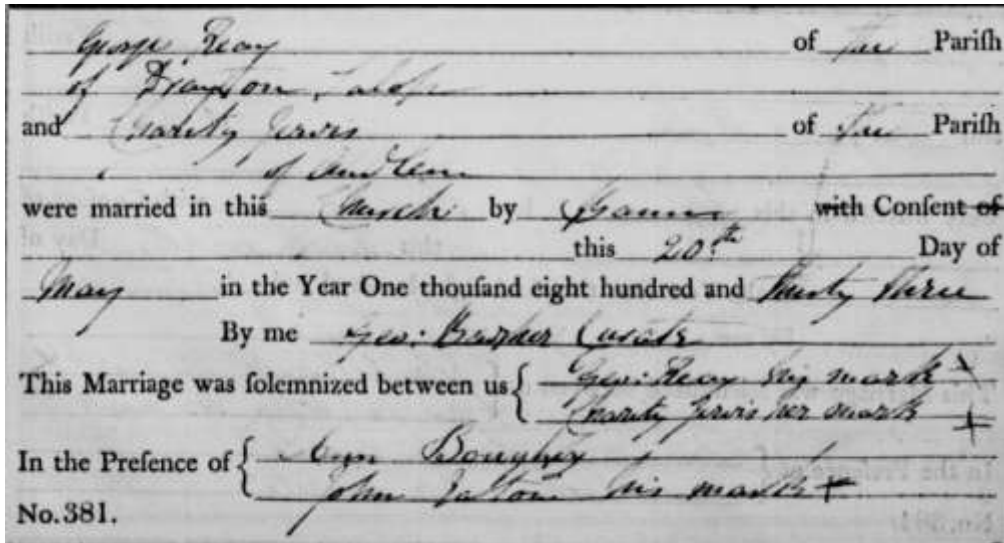 George Reay of the Parish
of Drayton, Salop
and Charity Jervis of the Parish
of Audlem
were married in this Church by Banns with Consent of
this 20th Day of
May in the Year One thousand eight hundred and thirty three
By me Geo: Barker Curate
This Marriage was solemnized between us { Geo: Reay his mark X
Charity Jervis her mark X
In the Presence of { Ann Boughey
John his mark X
No. 381.